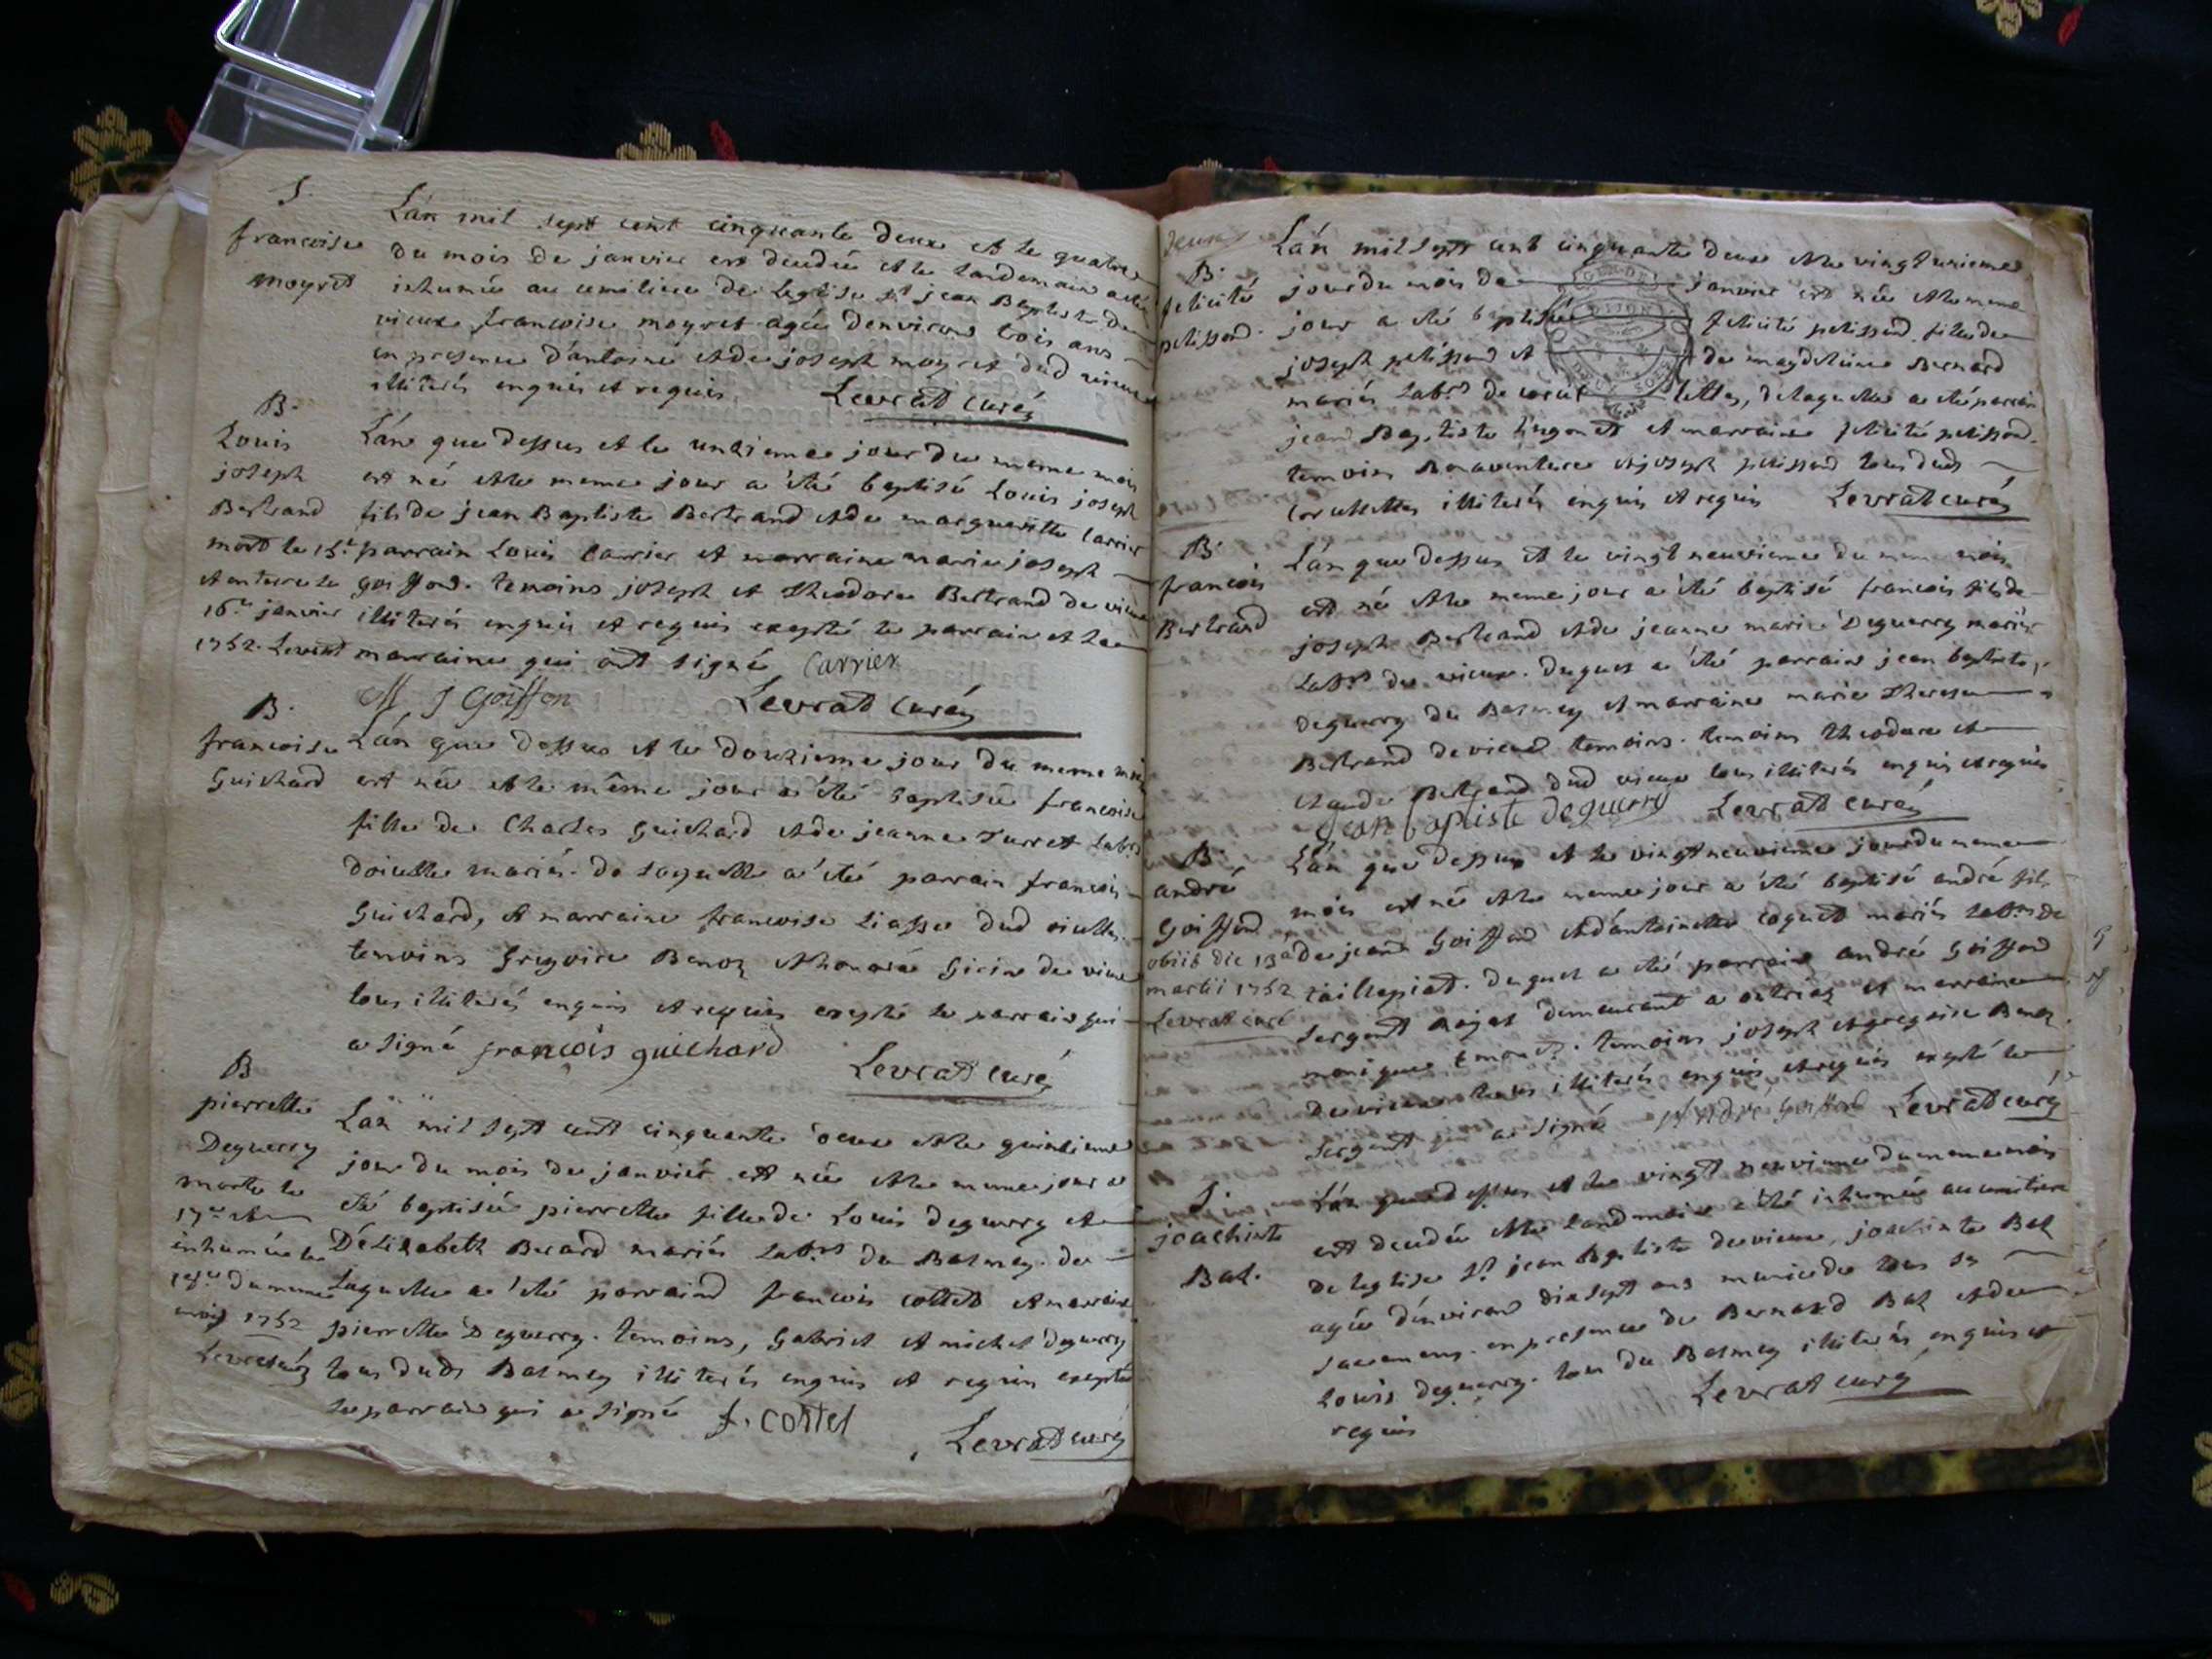 S.
francoise
moyret
Lán mil sept cent cinquante deux et le quatre
du mois de janvier est decedée et le landemain a été
inhumée au cemitiere de leglise st jean Baptiste de
vieux francoise moyret agée denviron trois ans
en presence d'antoine et de joseph moyret dud vieux
illiterés enquis et requis Levrat curé
B.
Louis
joseph
Bertrand
mort le 15e
et enterré le
16e janvier
1752. Levrat
Lán que dessus et le unzieme jour du meme mois
est né et le meme jour a été baptisé Louis joseph
fils de jean Baptiste Bertrand et de margueritte Carrier
parrain Louis Carrier et marraine marie joseph
goiffond. temoins joseph et Theodore Bertrand de vieux
illiterés enquis et requis excepté le parrain et la
marraine qui ont signé Carrier
M J Goiffon Levrat curé
B.
francoise
Guichard
Lán que dessus et le douzieme jour du meme mois
est née et le même jour a été baptisée francoise
fille de Charles Guichard et de jeanne Turret Labrs
doicelle mariés. de laquelle a été parrain francois
Guichard, et marraine francoise Liasse dud
temoins Gregoire Benoz et honoré de vieux
tous illiterés enquis et requis excepté le parrain qui
a signé francois guichard Levrat curé
B
pierrette
Deguerry
morte le
17e et
inhumée le
18e du meme
mois 1752
Levrat curé
Lán mil sept cent cinquante deux et le quinzieme
jour du mois de janvier est née et le meme jour a
été baptisée pierrette fille de Louis deguerry et
Délizabeth Berard mariés Labrs du Balmey. de
laquelle a été parraind francois cottet et marraine
pierrette Deguerry. temoins, Gabriel et michel deguerry
tous dudt Balmey illiterés enquis et requis excepté
le parrain qui a signé f. cottet
Levrat curé
deux
B.
felicité
pelissond.
Lán mil sept cent cinquante deux et le vingt unieme
jour du mois de janvier est née et le meme
jour a été baptisée felicité pelissond. fille de
joseph pelissond et de magdeleine Bernard
mariés Labrs de lettes, delaquelle a été parrain
jean Baptiste et marraine felicité pelissond.
temoins Bonaventure et joseph pelissond tous dudt
illiterés enquis et requis Levrat curé
B.
francois
Bertrand
Lán que dessus et le vingt neuvieme du meme mois
est né et le meme jour a été baptisé francois fils de
joseph Bertrand et de jeanne marie Deguerry mariés
Labrs de vieux. duquel a été parrain jean baptiste
deguerry du Balmey et marraine marie Therese
Bertrand de vieux temoins. temoins theodore et
claude Bertrand dud vieux tous illiterés enquis et requis
jean baptiste deguerry Levrat curé
B.
andré
Goiffond
obiit die 13a
martii 1752
Levrat curé
Lán que dessus et le vingt neuvieme jour du meme
mois est né et le meme jour a été baptisé andré fils
de jean Goiffond et d'antoinette coquet mariés Labrs de
taillepiat. duquel a été parrain andré Goiffond
sergent Royal demeurant a artriaz et marraine
monique. temoins joseph et gregoire Benoz
de vieux tous illiterés enquis et requis excepté le
sergent qui a signé André Goiffond Levrat curé
S.
joachinte
Bal.
Lán que dessus et le vingt neuvieme du meme mois
est decedée et le landemain a été inhumée au cemitiere
de leglise st jean Baptiste de vieux, joachinte Bal
agée dénvirond dix sept ans munie de tous ses
sacremens. en presence de Bernard Bal et de
Louis deguerry. tous du Balmey illiterés enquis et
requis Levrat curé